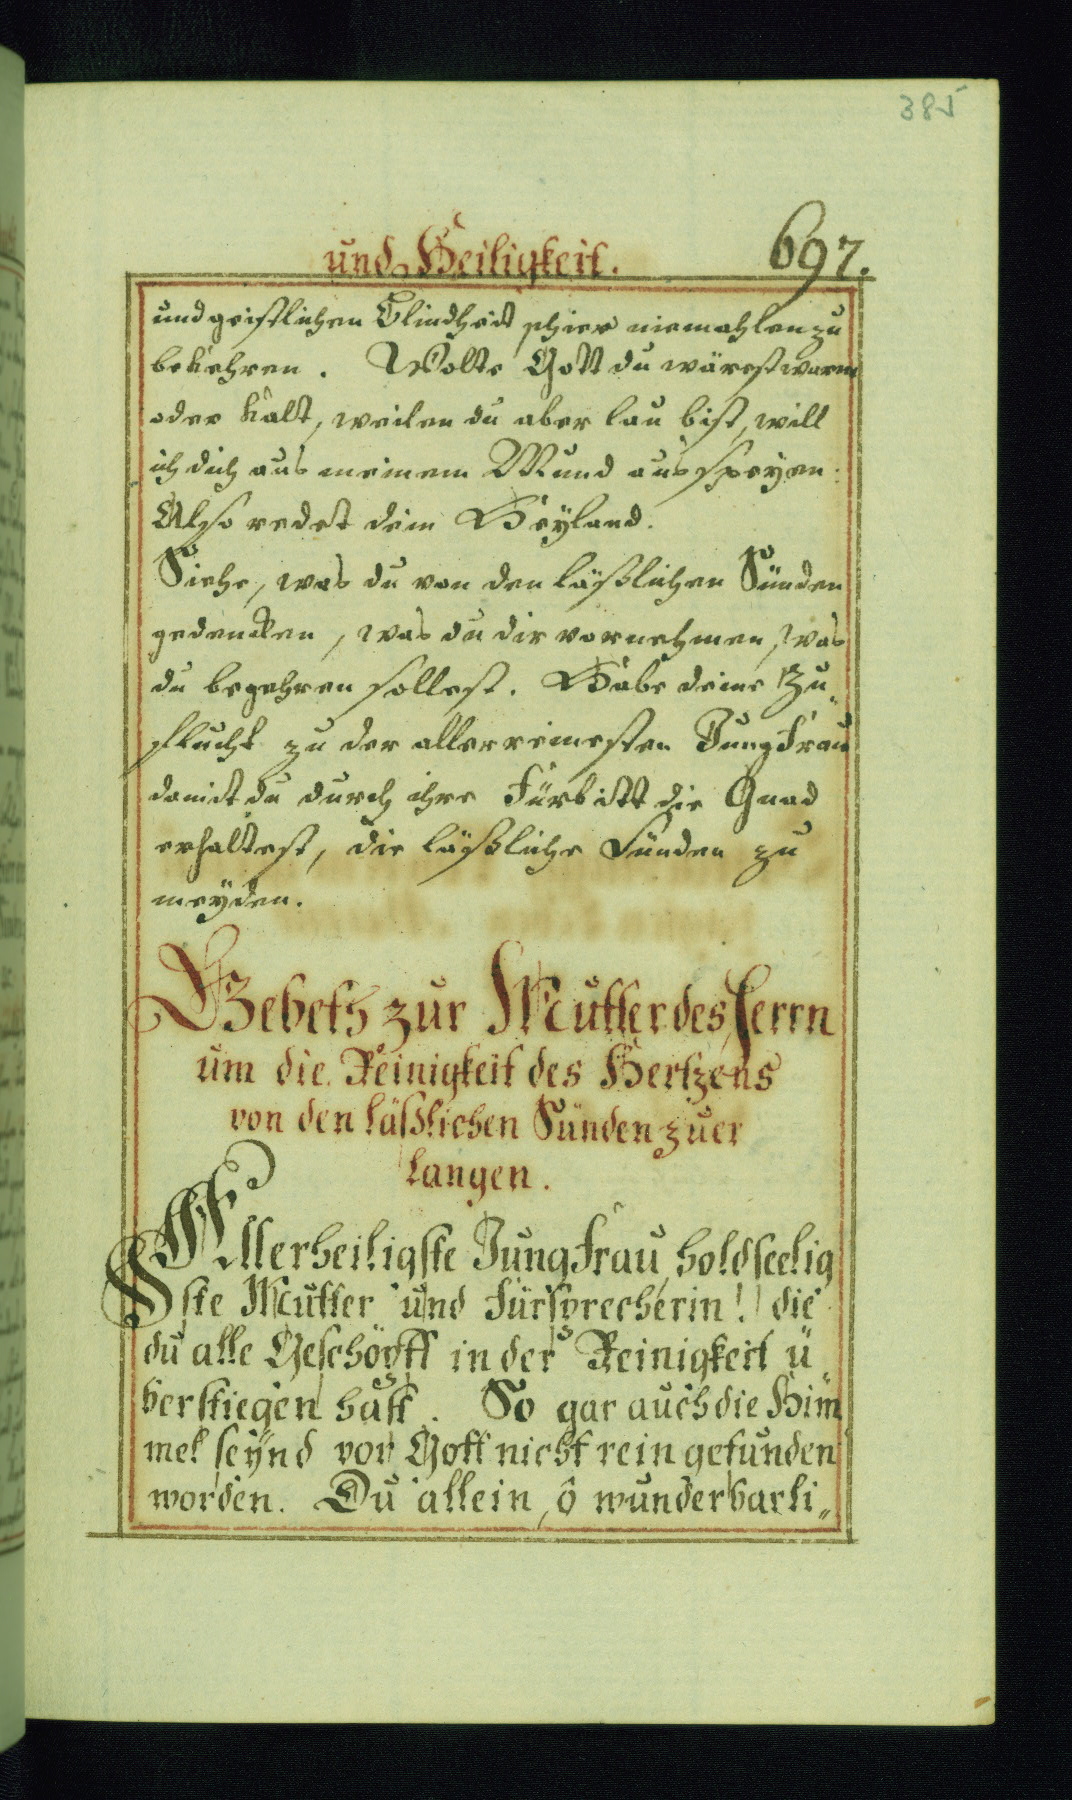 385
und Heiligkeit. 697.
und geistlichen Blindheit schier niemahlen zu
bekehren. Wolte Gott du wärest warm
oder kalt, weilen du aber lau bist, will
ich dich aus meinem Mund ausspeyen:
Also redet dein Heyland.
Siehe, was du von den läßlichen Sünden
gedencken, was du dir vornehmen, was
du begehren sollest. Habe deine Zu„
flucht zu der allerreinesten Jungfrau
damit du durch ihre Fürbitt die Gnad
erhaltest, die läßliche Sünden zu
meÿden.
Gebeth zur Mutter des Herrn
um die Reinigkeit des Hertzens
von den läßlichen Sünden zu er
langen.
Allerheiligste Jungfrau, holdseelig
ste Mutter und Fürsprecherin! die
du alle Geschöpff in der Reinigkeit ü
berstiegen hast. So gar auch die Him
mel seÿnd vor Gott nicht rein gefunden
worden. Du allein, ô wunderbarli„